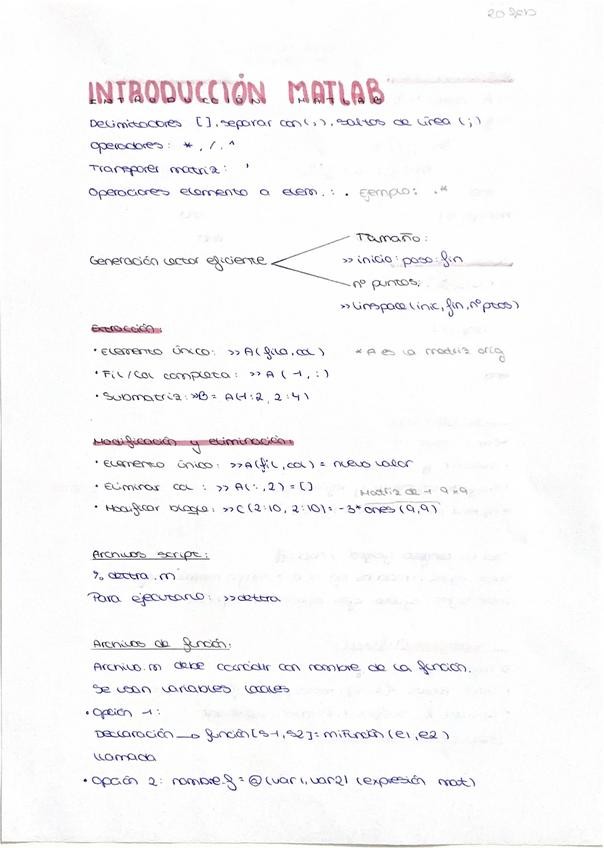 20 Sep
INTRODUCCIÓN MATLAB
INTRODUCCIÓN MATLAB
Delimitadores [], separar con (,), saltos de línea (;)
Operadores: *, /, ^
Transponer matriz: '
Operaciones elemento a elem.: . Ejemplo: .*
Tamaño:
Generación vector eficiente
>> inicio:paso:fin
nº puntos:
>> linspace(inic, fin, nºptos)
Extracción:
• Elemento único: >> A(fila, col) *A es la matriz orig
• Fil/Col completa: >> A (1, :)
• Submatriz: >>B = A(1:2, 2:4)
Modificación y eliminación:
• Elemento único: >>A(fil, col) = nuevo valor
• Eliminar col: >> A(:,2) = []
Matriz de 1 9x9
• Modificar bloque: >> C(2:10, 2:10) = -3*ones(9,9)
Archivos script:
% dettra.m
Para ejecutarlo: >>dettra
Archivos de función:
Archivo.m debe coincidir con nombre de la función.
Se usan variables locales
• Opción 1:
Declaración → función [s1,s2] = miFunción (e1, e2)
Llamada
• Opción 2: nombre.f = @(var1, var2) (expresión mat)